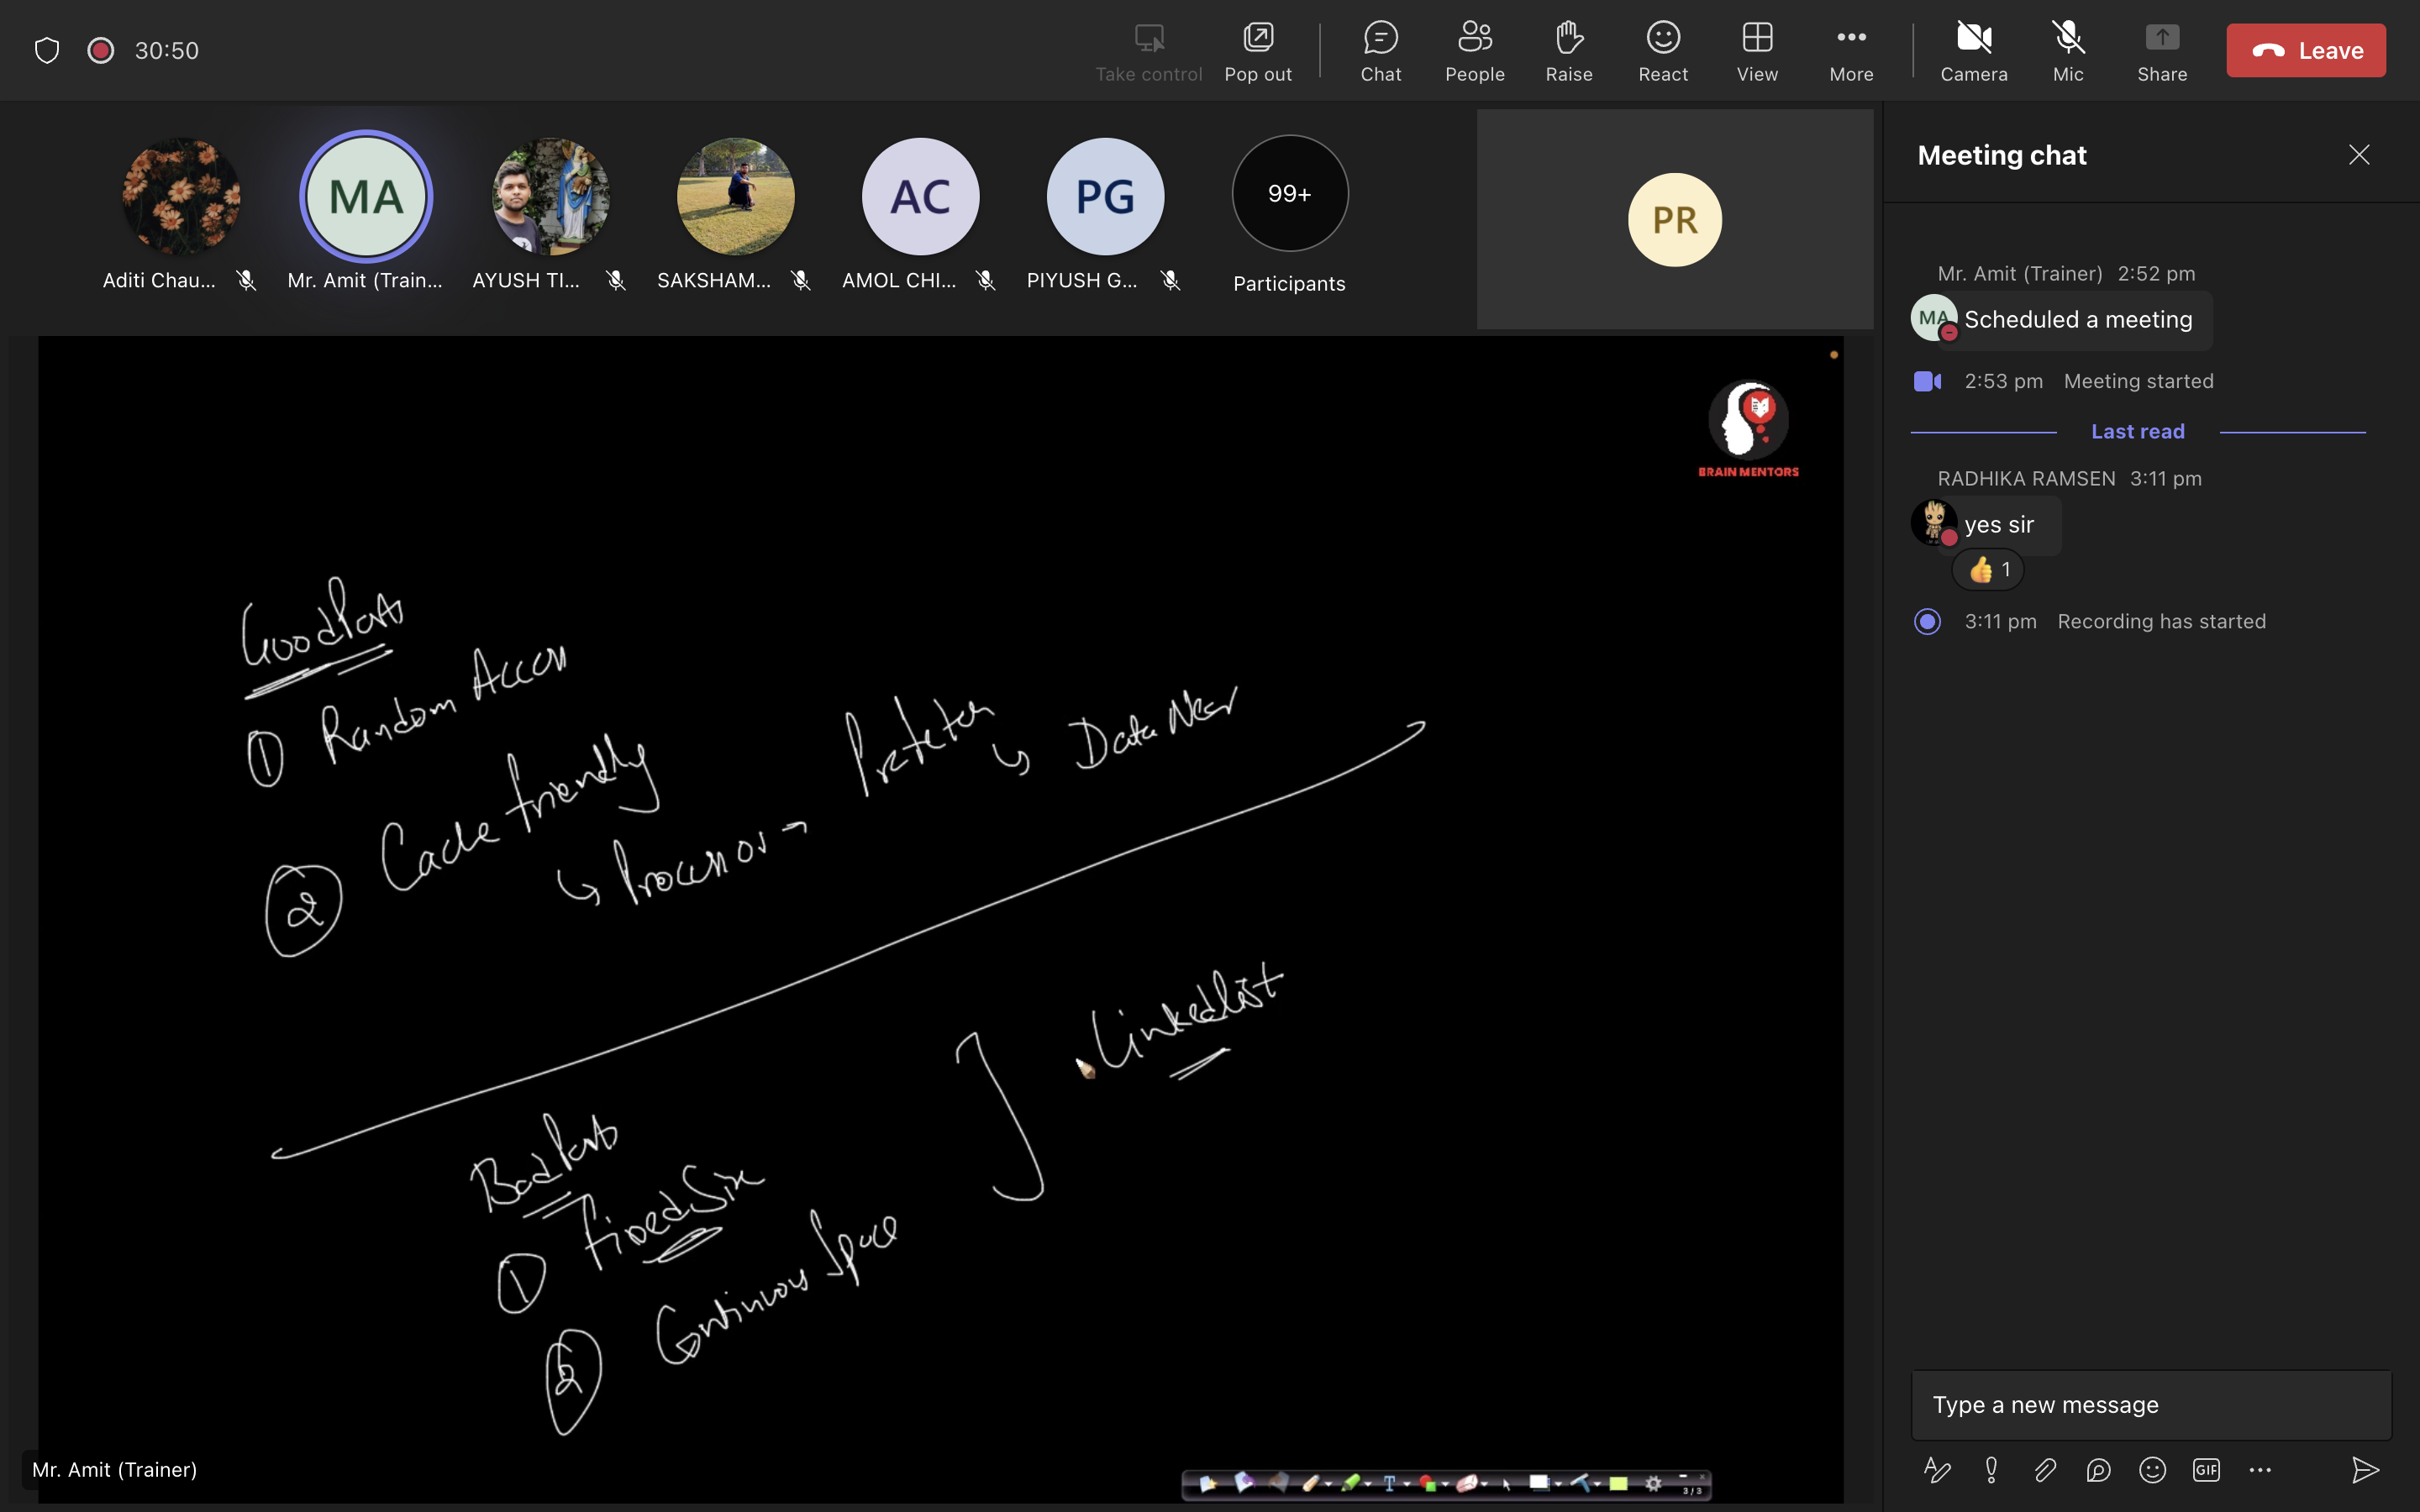 30:50
Take control
Pop out
Chat
People
Raise
React
View
More
Camera
Mic
Share
Leave
MA
AC
PG
99+
PR
Aditi Chau...
Mr. Amit (Train...
AYUSH TI...
SAKSHAM...
AMOL CHI...
PIYUSH G...
Participants
BRAIN MENTORS
Good Parts
① Random Access
② Cache friendly
↳ Processor → Prefetch ↳ Data Near
Bad Parts
① Fixed Size
② Continuous Space
Linkedlist
Mr. Amit (Trainer)
T
3/3
Meeting chat
Mr. Amit (Trainer) 2:52 pm
MA
Scheduled a meeting
2:53 pm Meeting started
Last read
RADHIKA RAMSEN 3:11 pm
yes sir
👍 1
3:11 pm Recording has started
Type a new message
GIF